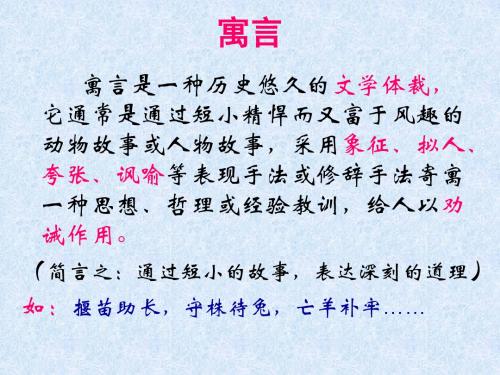 寓言
寓言是一种历史悠久的文学体裁，
它通常是通过短小精悍而又富于风趣的
动物故事或人物故事，采用象征、拟人、
夸张、讽喻等表现手法或修辞手法寄寓
一种思想、哲理或经验教训，给人以劝
诫作用。
（简言之：通过短小的故事，表达深刻的道理）
如：揠苗助长，守株待兔，亡羊补牢……